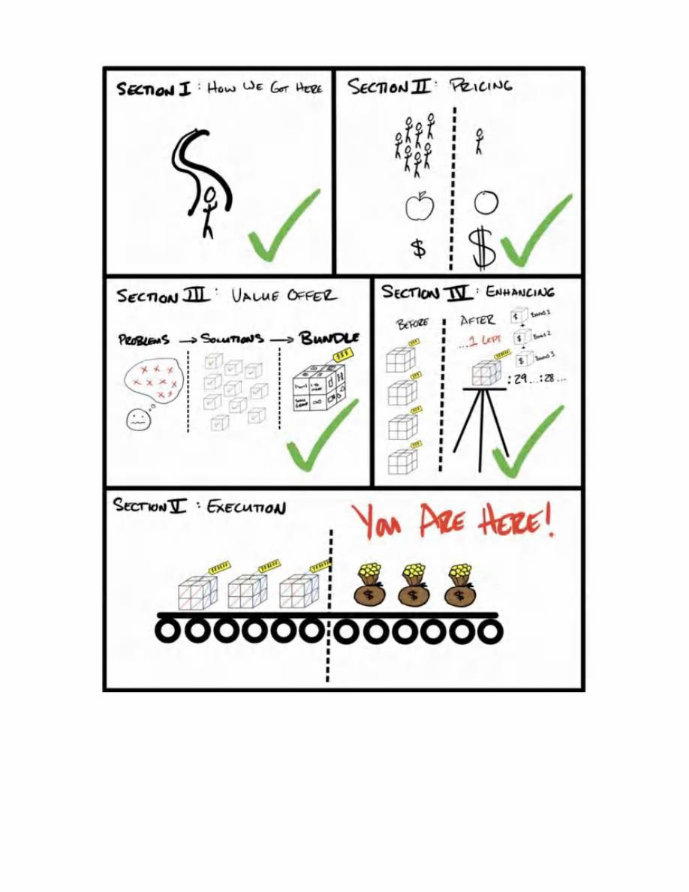 SECTION I : HOW WE GOT HERE
SECTION II : PRICING
$
$
SECTION III : VALUE OFFER
PROBLEMS → SOLUTIONS → BUNDLE
SECTION IV : ENHANCING
BEFORE
AFTER
...1 LEFT
$
$
$
:29...:28...
SECTION V : EXECUTION
YOU ARE HERE!
$
$
$